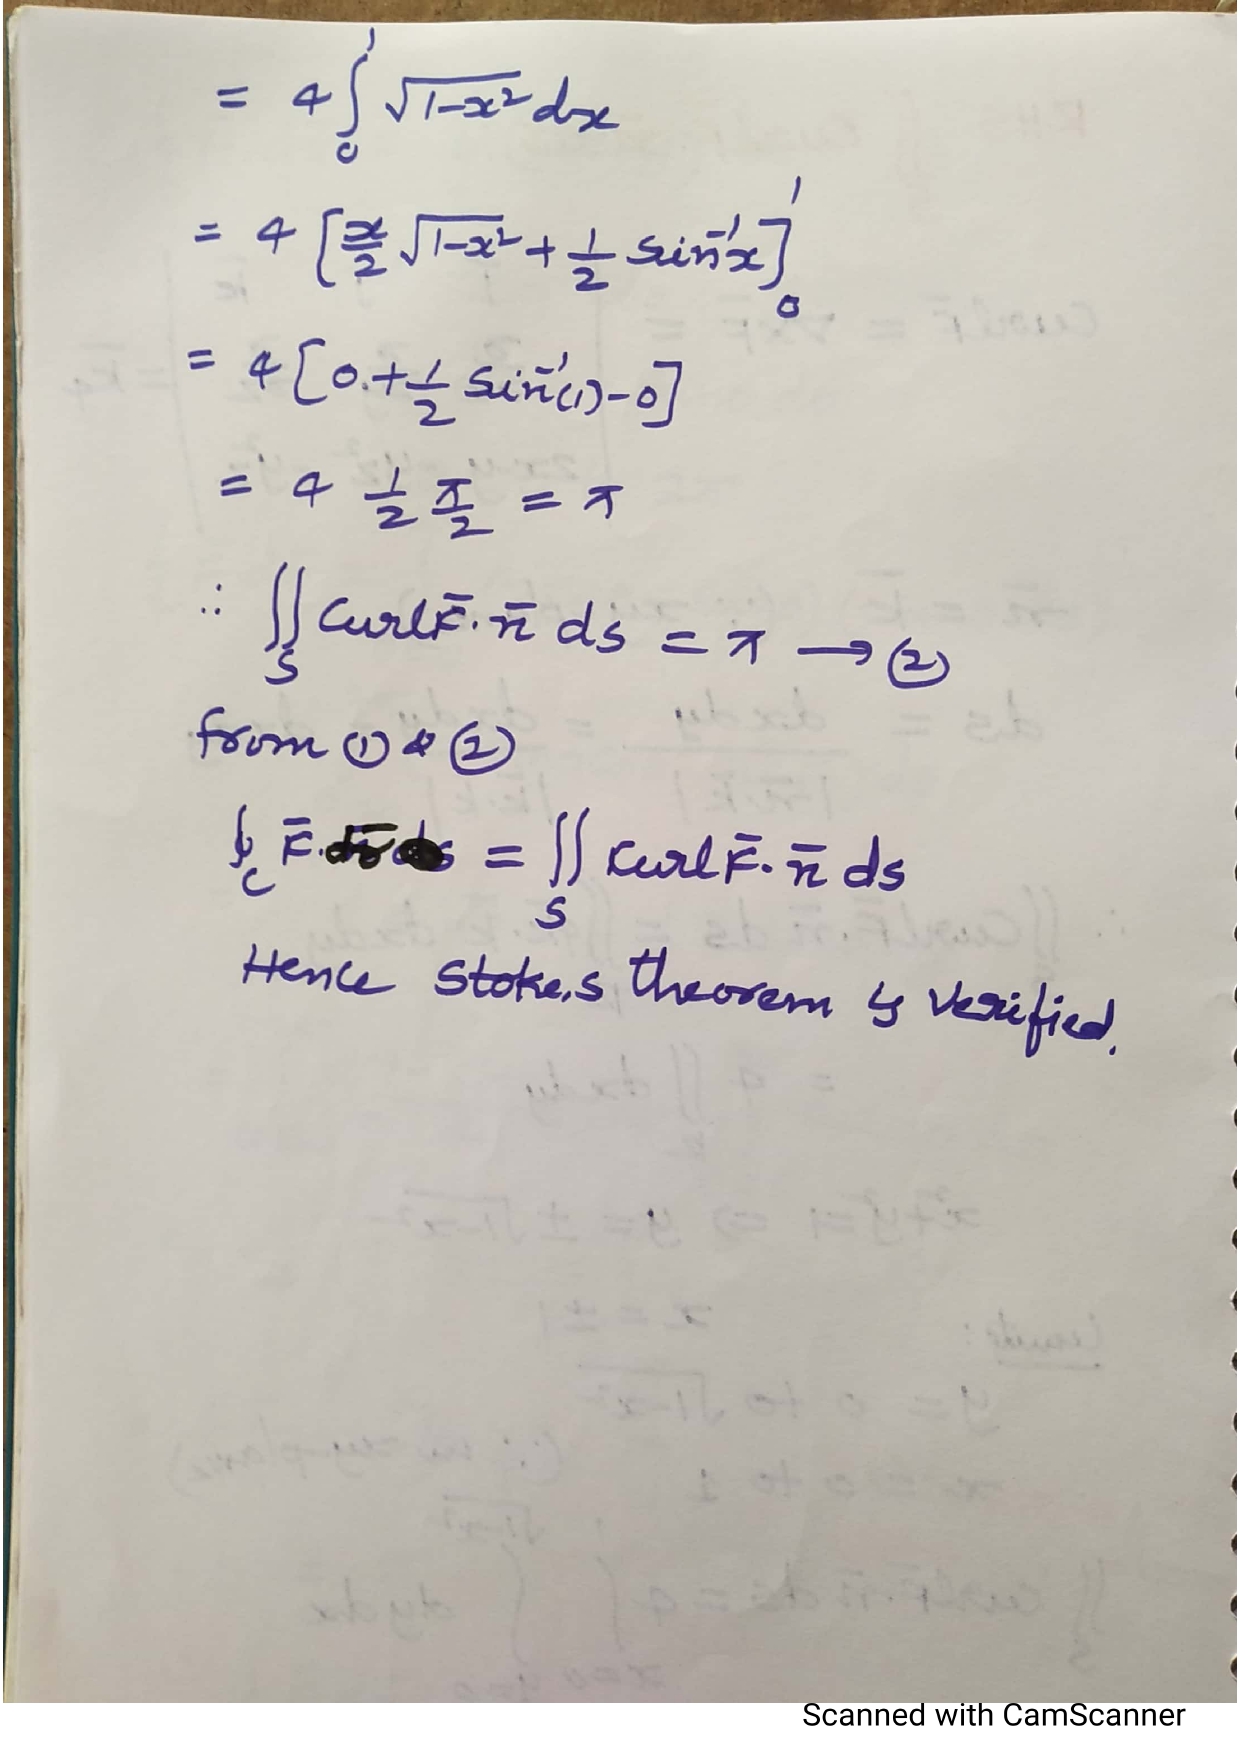 = 4 ∫₀¹ √1-x² dx
= 4 [x/2 √1-x² + 1/2 sin⁻¹x]₀¹
= 4 [0 + 1/2 sin⁻¹(1) - 0]
= 4 1/2 π/2 = π
∴ ∬_S Curl F̄ . n̄ ds = π → ②
from ① & ②
∮_C F̄ . = ∬_S Curl F̄ . n̄ ds
Hence Stoke,s theorem is verified.
Scanned with CamScanner